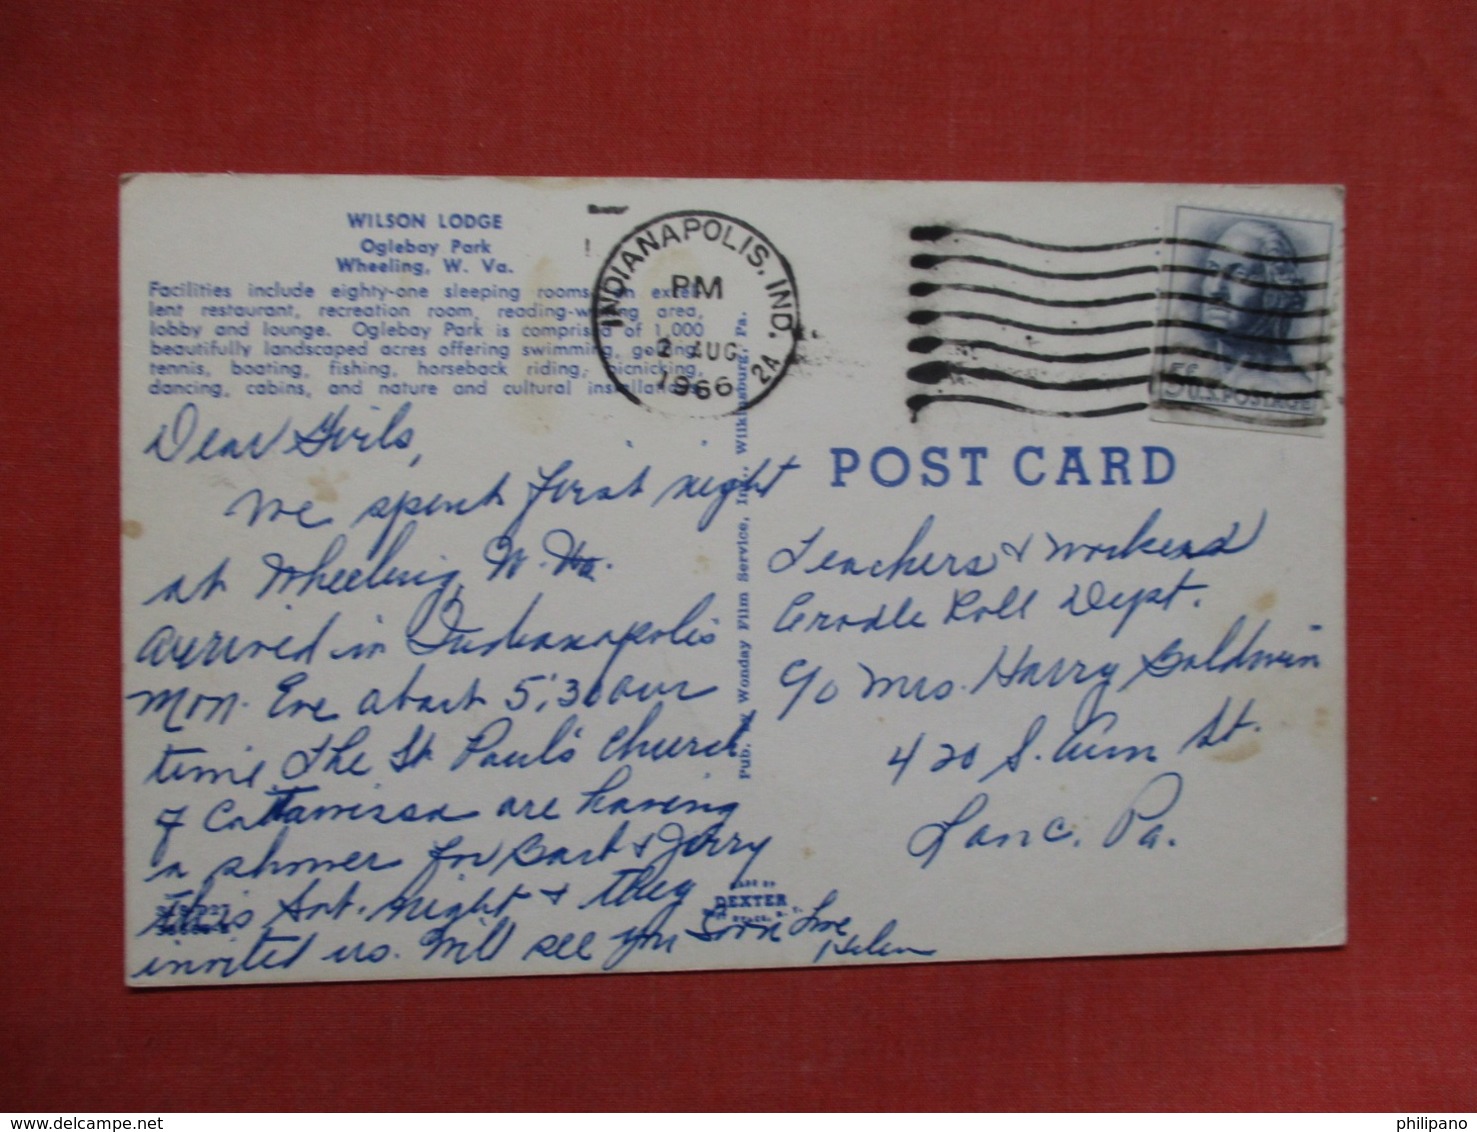 WILSON LODGE
Oglebay Park
Wheeling, W. Va.
Facilities include eighty-one sleeping rooms, an excel-
lent restaurant, recreation room, reading-writing area,
lobby and lounge. Oglebay Park is comprised of 1,000
beautifully landscaped acres offering swimming, golfing,
tennis, boating, fishing, horseback riding, picnicking,
dancing, cabins, and nature and cultural installations.
INDIANAPOLIS, IND.
PM
2 AUG
1966
2A
5¢ U.S. POSTAGE
Dear Girls,
We spent first night
at Wheeling, W. Va.
arrived in Indianapolis
Mon. Eve about 5:30 our
time. The St Paul's Church
of Cattawissa are having
a shower for Barb & Jerry
this Sat. night & they
invited us. Will see you soon Love
Helen
Pub. by Wonday Film Service, Inc., Wilkinsburg, Pa.
MADE BY
DEXTER
POST CARD
Teachers & Workers
Cradle Roll Dept.
c/o Mrs. Harry Baldwin
420 S. Ann St.
Lanc. Pa.
philipano